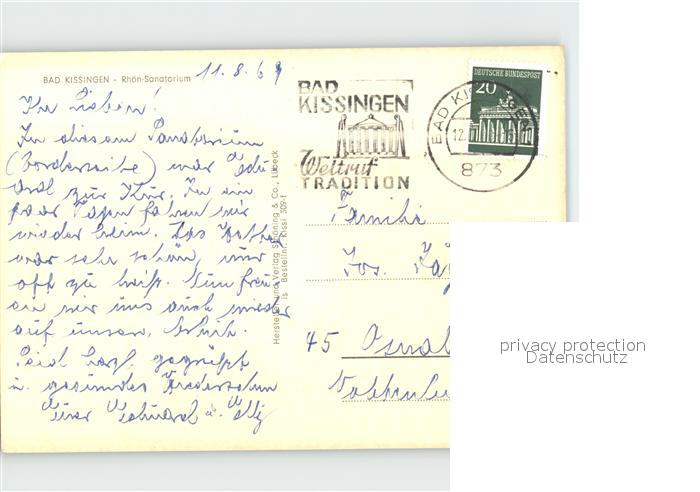 BAD KISSINGEN - Rhön-Sanatorium
11.8.69
Ihr Lieben!
In diesem Sanatorium
(Vorderseite) war Edu
ard zur Kur. In ein
paar Tagen fahren wir
wieder heim. Das Wetter
war sehr schön, nur
oft zu heiß. Nun freu
en wir uns auch wieder
auf unser
Seid herzl. gegrüßt
u. gesundes Wiedersehen
Eure Eduard u.
Hersteller und Verlag Schöning & Co., Lübeck
Bestellnr. Kissi 309-f
BAD
KISSINGEN
Weltruf
TRADITION
DEUTSCHE BUNDESPOST
20
BAD KISSINGEN
12.
873
Familie
Jos.
45 Osnab
privacy protection
Datenschutz